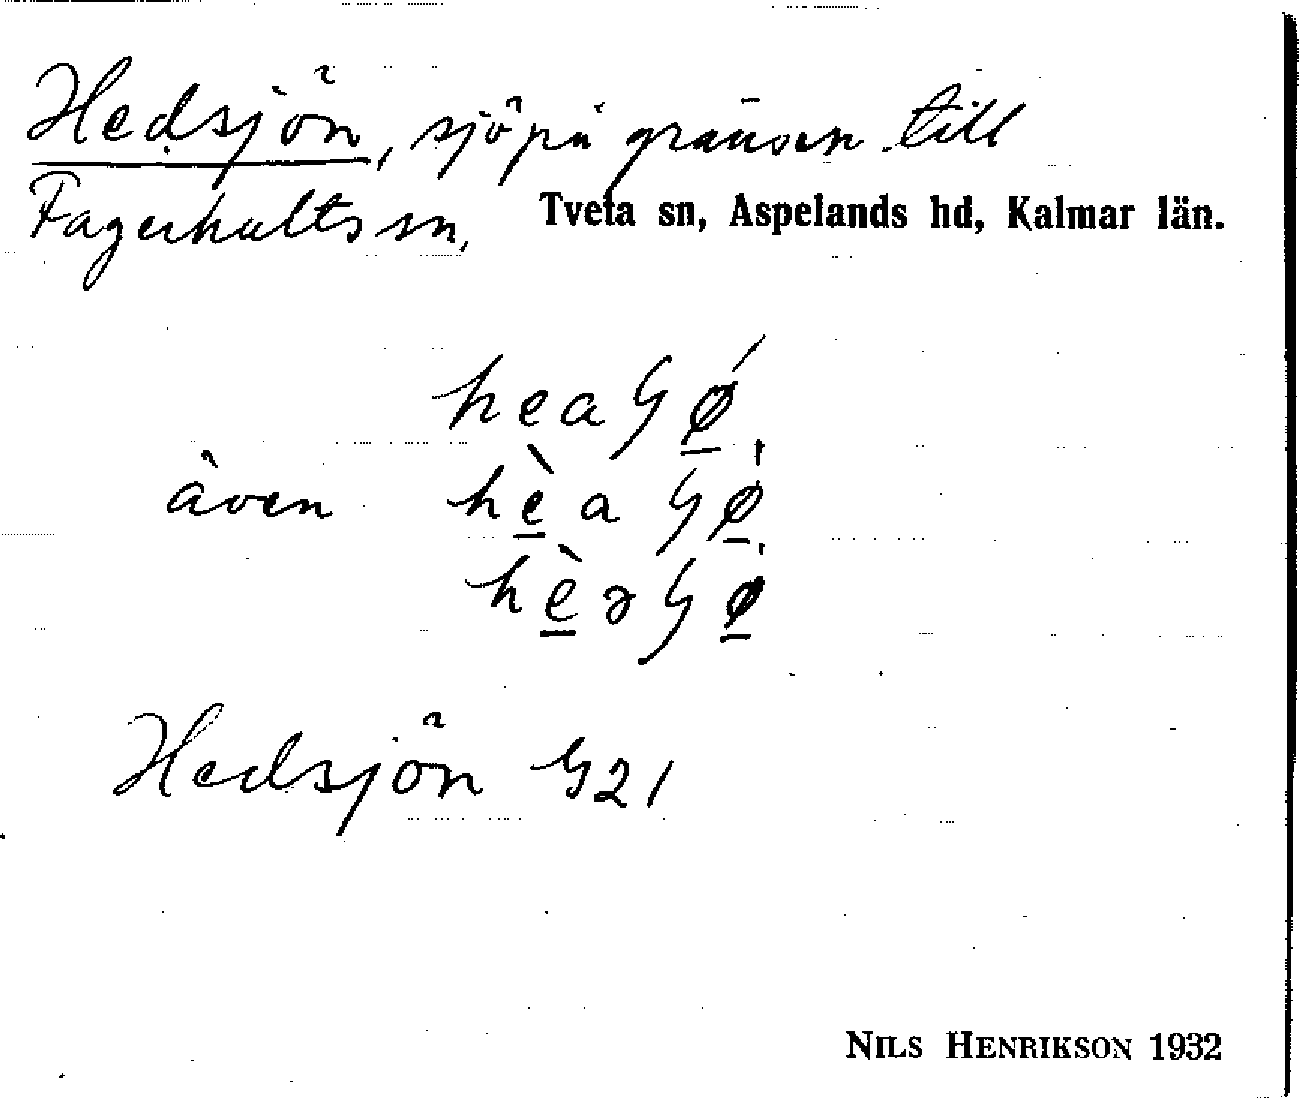 Hedsjön, sjö på gränsen till
Fagerhults sn,
Tveta sn, Aspelands hd, Kalmar län.
även
Hedsjön G21
NILS HENRIKSON 1932